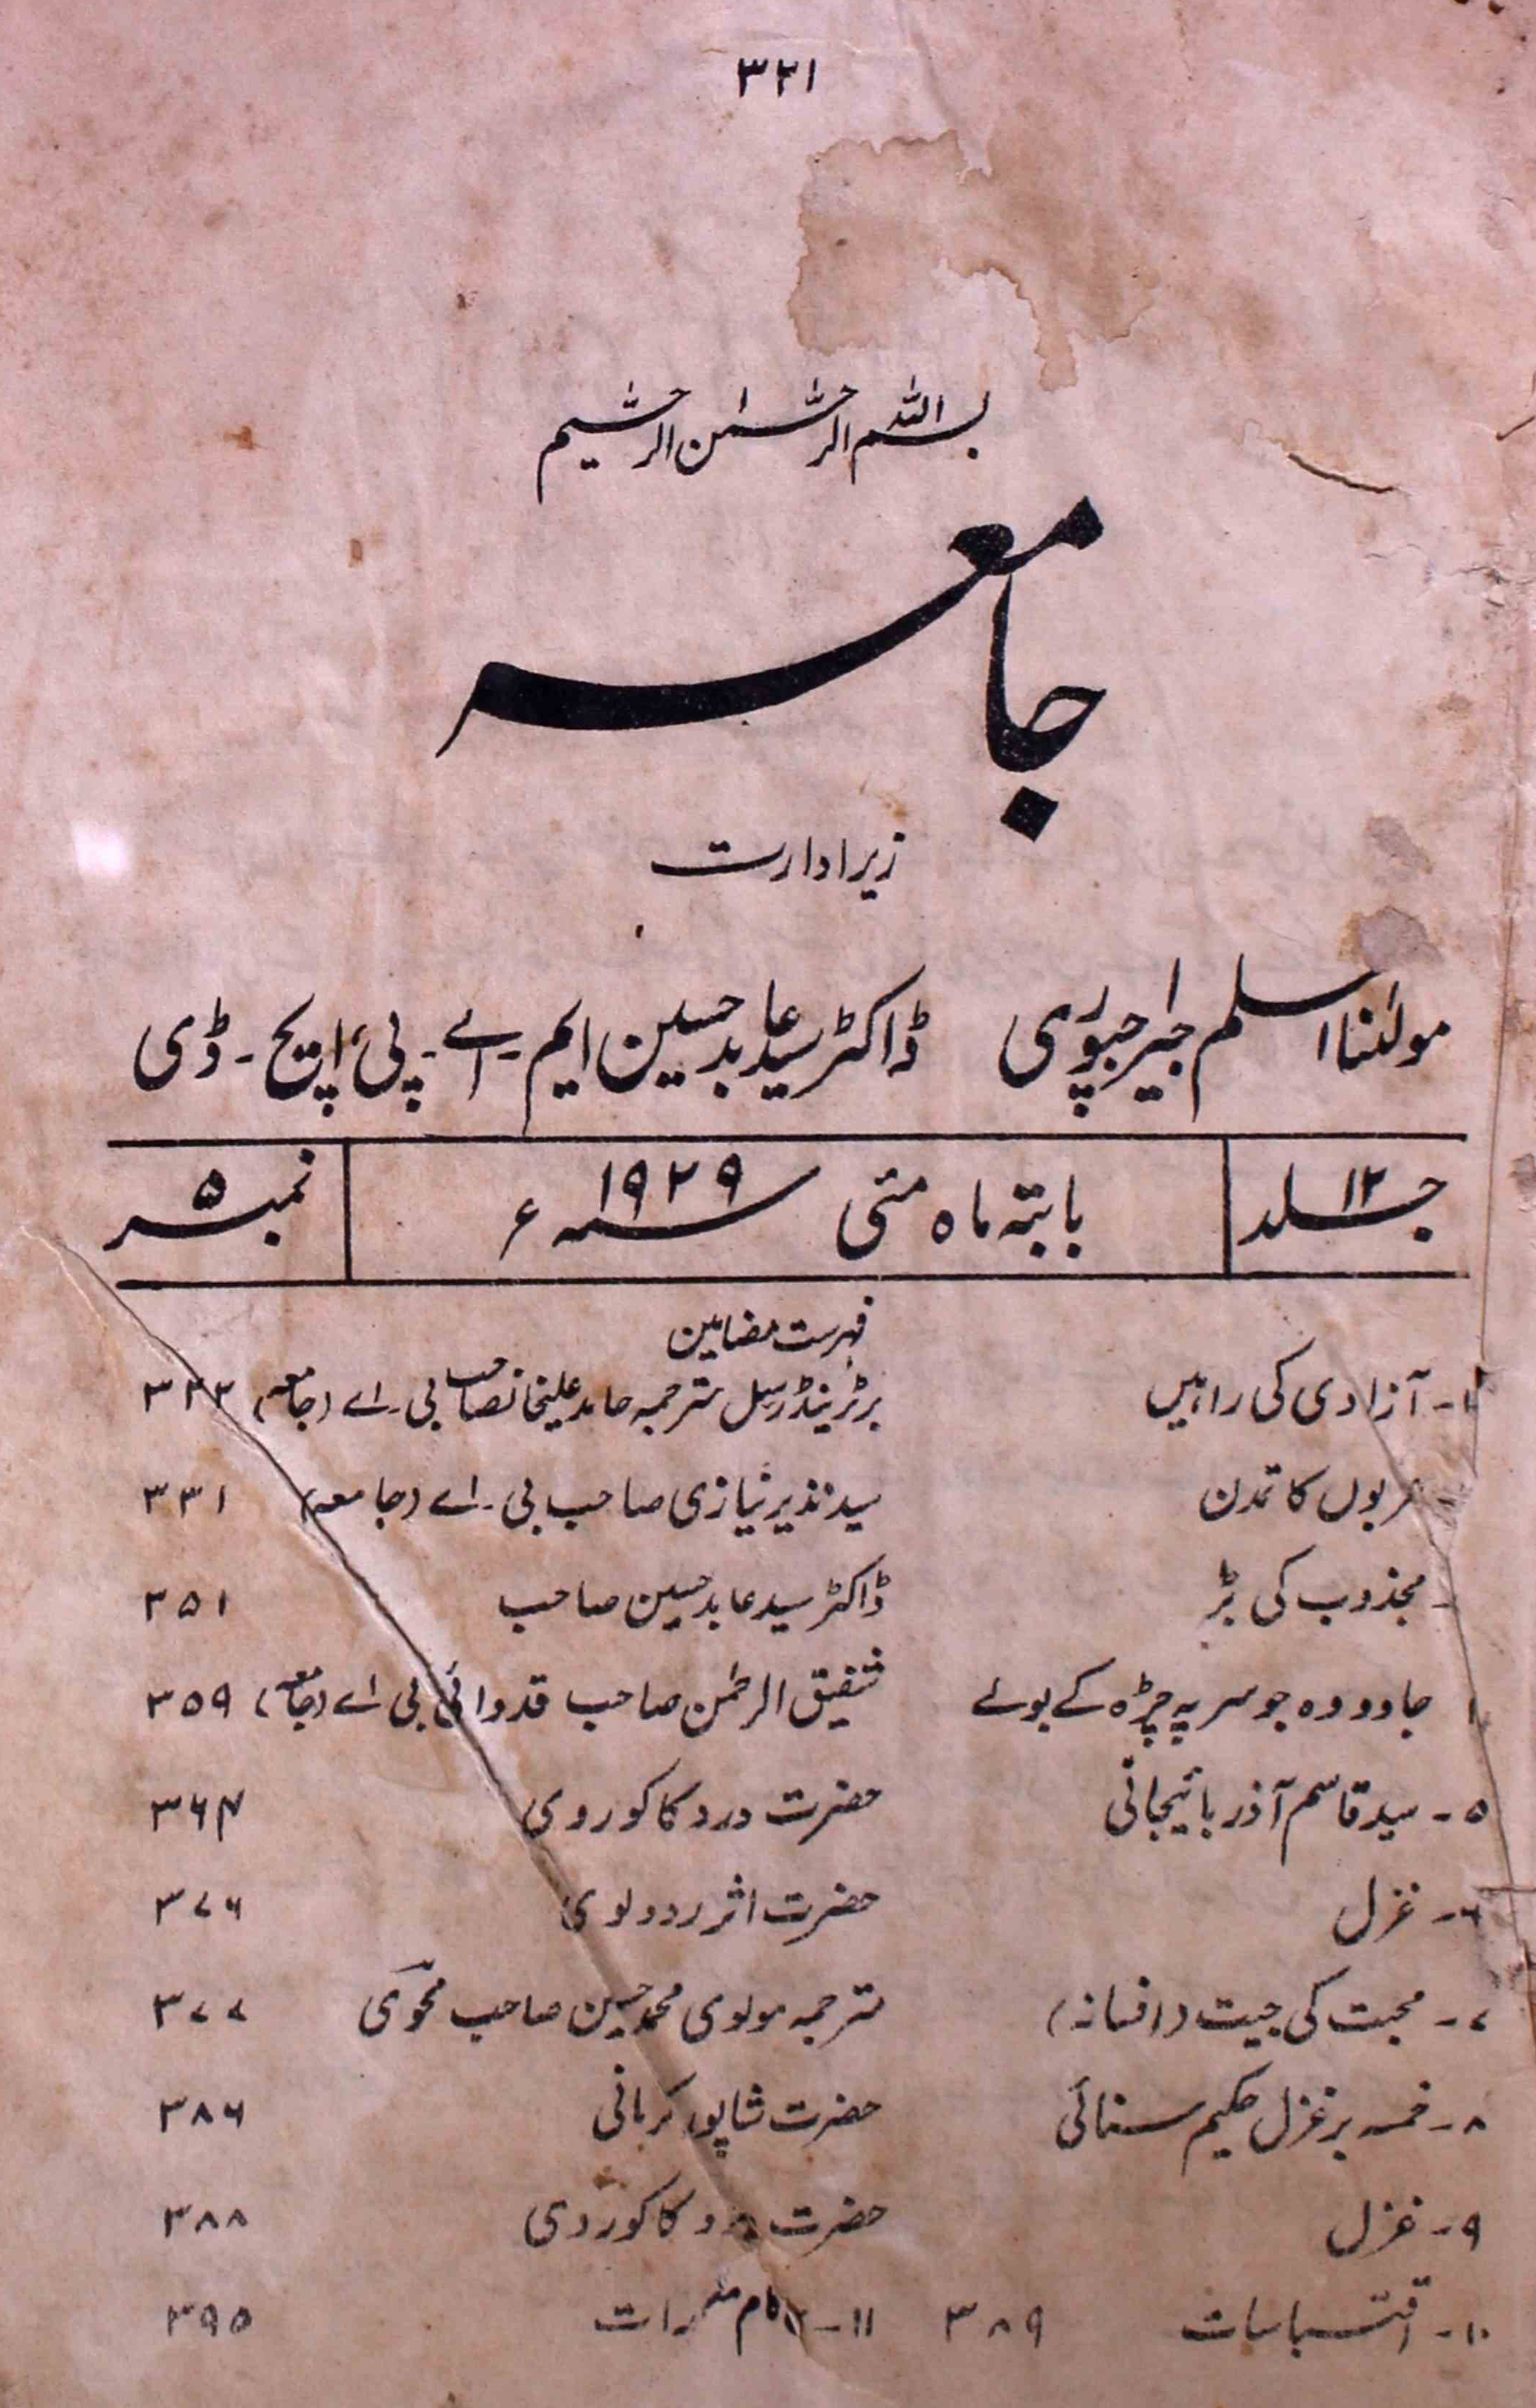 ۳۲۱
بسم اللہ الرحمٰن الرحیم
جامعہ
زیر ادارت
مولٰنا اسلم جیراجپوری ڈاکٹر سید عابد حسین ایم۔ اے۔ پی ایچ۔ ڈی
جلد ۱۲ بابتہ ماہ مئی ۱۹۲۹ء نمبر ۵
فہرست مضامین
۱۔ آزادی کی راہیں برٹرینڈ رسل مترجمہ حامد علیخانصاحب بی۔ اے (جامعہ) ۳۲۲
عربوں کا تمدن سید نذیر نیازی صاحب بی۔ اے (جامعہ) ۳۳۱
۔ مجذوب کی بڑ ڈاکٹر سید عابد حسین صاحب ۳۵۱
جادو وہ جو سر پہ چڑہ کے بولے شفیق الرحمٰن صاحب قدوائی بی اے (جامعہ) ۳۵۹
۵۔ سید قاسم آذر بائیجانی حضرت درد کاکوروی ۳۶۴
۶۔ غزل حضرت اثر ردولوی ۳۷۶
۷۔ محبت کی جیت (افسانہ) مترجمہ مولوی محمد حسین صاحب محوی ۳۷۷
۸۔ خمسہ بر غزل حکیم سنائی حضرت شاپور کرمانی ۳۸۶
۹۔ غزل حضرت درد کاکوروی ۳۸۸
۱۰۔ اقتباسات ۳۸۹ ۱۱۔ ۳۹۵